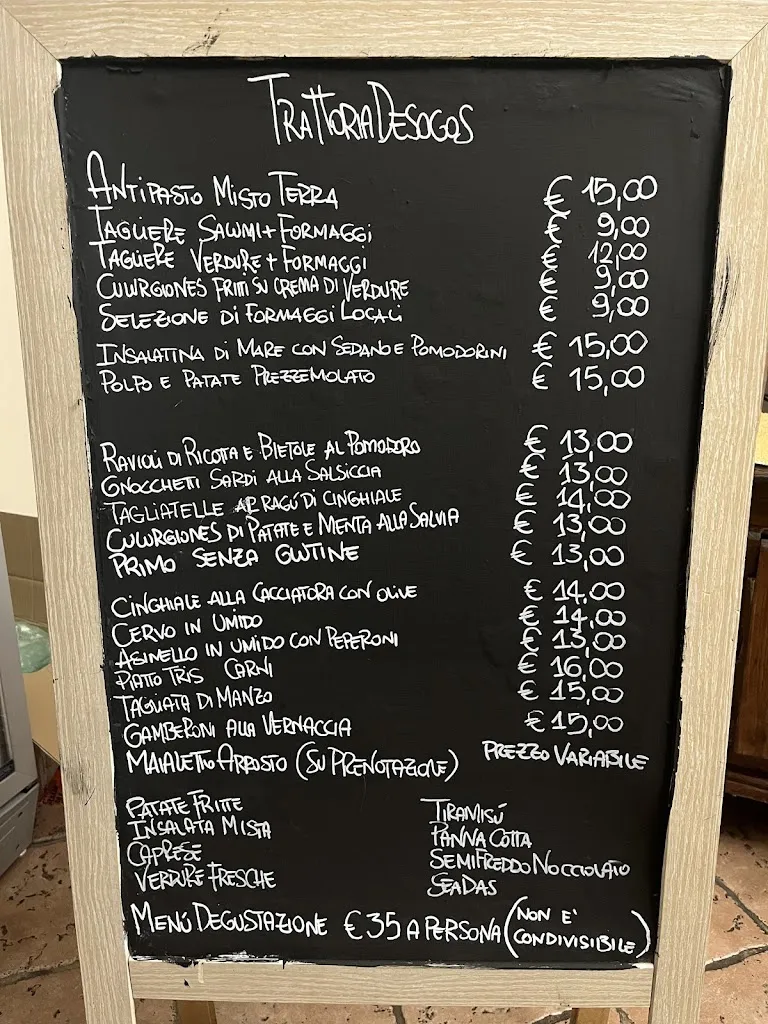 TRATTORIA DESOGOS
ANTIPASTO MISTO TERRA € 15,00
TAGLIERE SALUMI + FORMAGGI € 9,00
TAGLIERE VERDURE + FORMAGGI € 12,00
CULURGIONES FRITTI SU CREMA DI VERDURE € 9,00
SELEZIONE DI FORMAGGI LOCALI € 9,00
INSALATINA DI MARE CON SEDANO E POMODORINI € 15,00
POLPO E PATATE PREZZEMOLATO € 15,00
RAVIOLI DI RICOTTA E BIETOLE AL POMODORO € 13,00
GNOCCHETTI SARDI ALLA SALSICCIA € 13,00
TAGLIATELLE AL RAGÚ DI CINGHIALE € 14,00
CULURGIONES DI PATATE E MENTA ALLA SALVIA € 13,00
PRIMO SENZA GLUTINE € 13,00
CINGHIALE ALLA CACCIATORA CON OLIVE € 14,00
CERVO IN UMIDO € 14,00
ASINELLO IN UMIDO CON PEPERONI € 13,00
PIATTO TRIS CARNI € 16,00
TAGLIATA DI MANZO € 15,00
GAMBERONI ALLA VERNACCIA € 15,00
MAIALETTO ARROSTO (SU PRENOTAZIONE) PREZZO VARIABILE
PATATE FRITTE
INSALATA MISTA
CAPRESE
VERDURE FRESCHE
TIRAMISÚ
PANNA COTTA
SEMIFREDDO NOCCIOLATO
SEADAS
MENÚ DEGUSTAZIONE € 35 A PERSONA (NON E' CONDIVISIBILE)